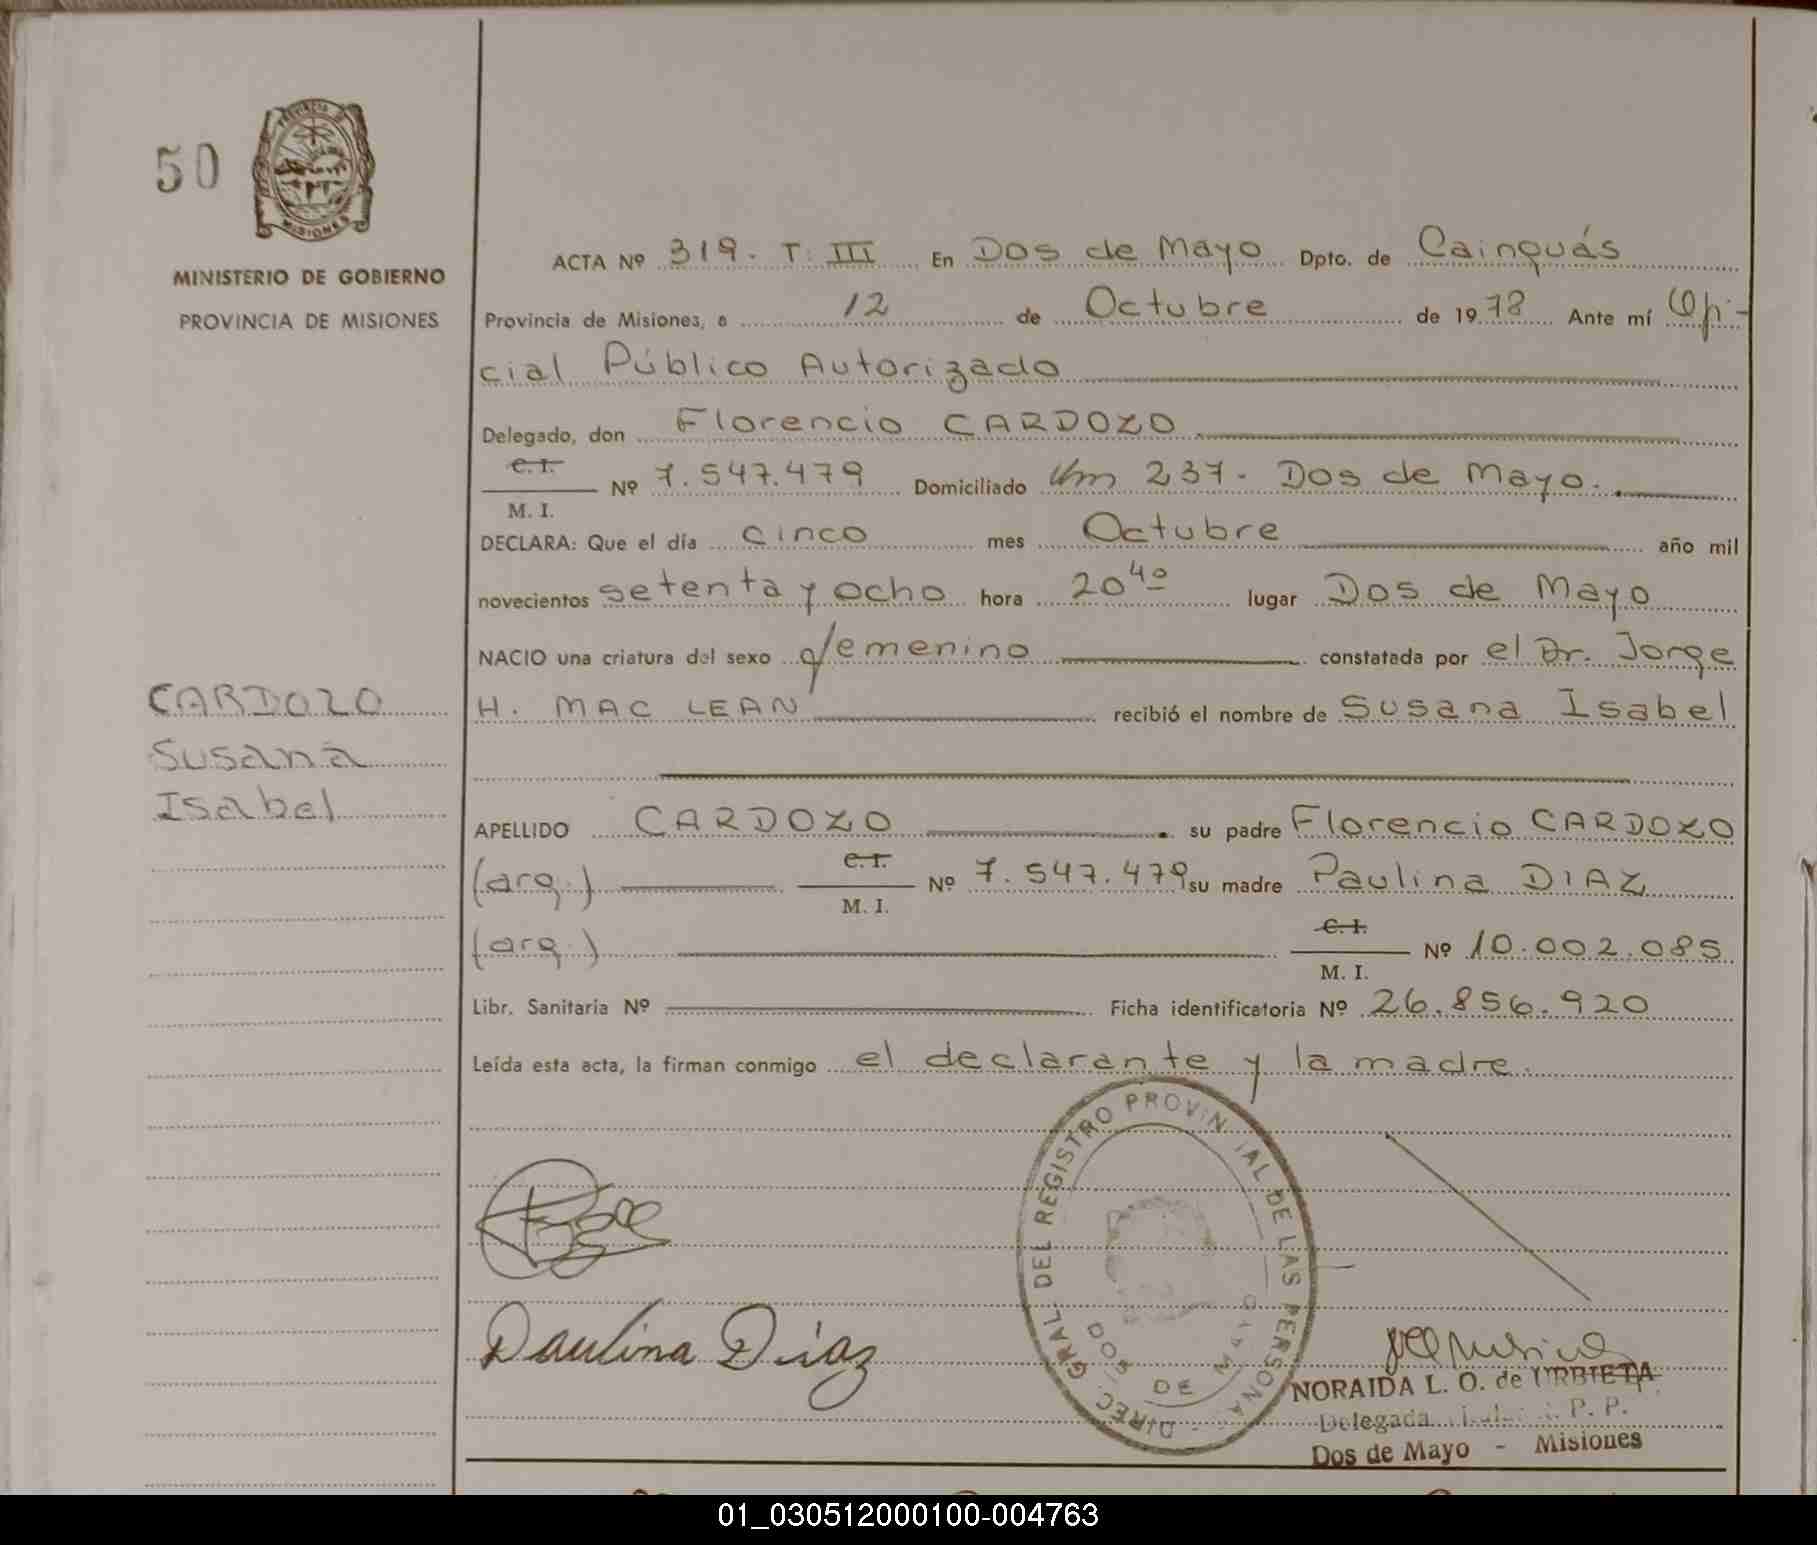 50
PROVINCIA DE
MISIONES
MINISTERIO DE GOBIERNO
PROVINCIA DE MISIONES
ACTA Nº 319. T. III En Dos de Mayo Dpto. de Cainguás
Provincia de Misiones, a 12 de Octubre de 1978 Ante mí Ofi-
cial Público Autorizado
Delegado, don Florencio CARDOZO
C. I.
M. I. Nº 7.547.479 Domiciliado Km 237 - Dos de Mayo.
DECLARA: Que el día cinco mes Octubre año mil
novecientos setenta y ocho hora 20 40 lugar Dos de Mayo
NACIO una criatura del sexo femenino constatada por el Dr. Jorge
H. MAC LEAN recibió el nombre de Susana Isabel
CARDOZO
Susana
Isabel
APELLIDO CARDOZO su padre Florencio CARDOZO
(arg.) C. I.
M. I. Nº 7.547.479 su madre Paulina DIAZ
(arg.) C. I.
M. I. Nº 10.002.085
Libr. Sanitaria Nº Ficha identificatoria Nº 26.856.920
Leída esta acta, la firman conmigo el declarante y la madre.
DIREC. GRAL DEL REGISTRO PROVIN IAL DE LAS PERSONA
DOS DE MAYO
Paulina Díaz
NORAIDA L. O. de URBIETA
Delegada P. P.
Dos de Mayo - Misiones
01_030512000100-004763